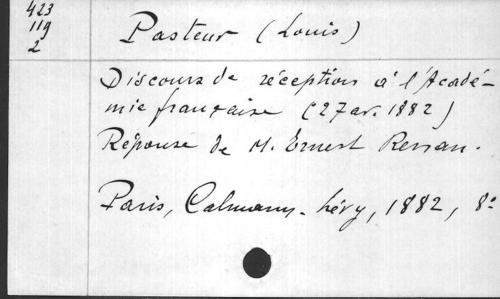 423
119
2
Pasteur (Louis)
Discours de réception à l'Acadé-
mie française (27 av. 1882)
Réponse de M. Ernest Renan.
Paris, Calmann-Lévy, 1882, 8º